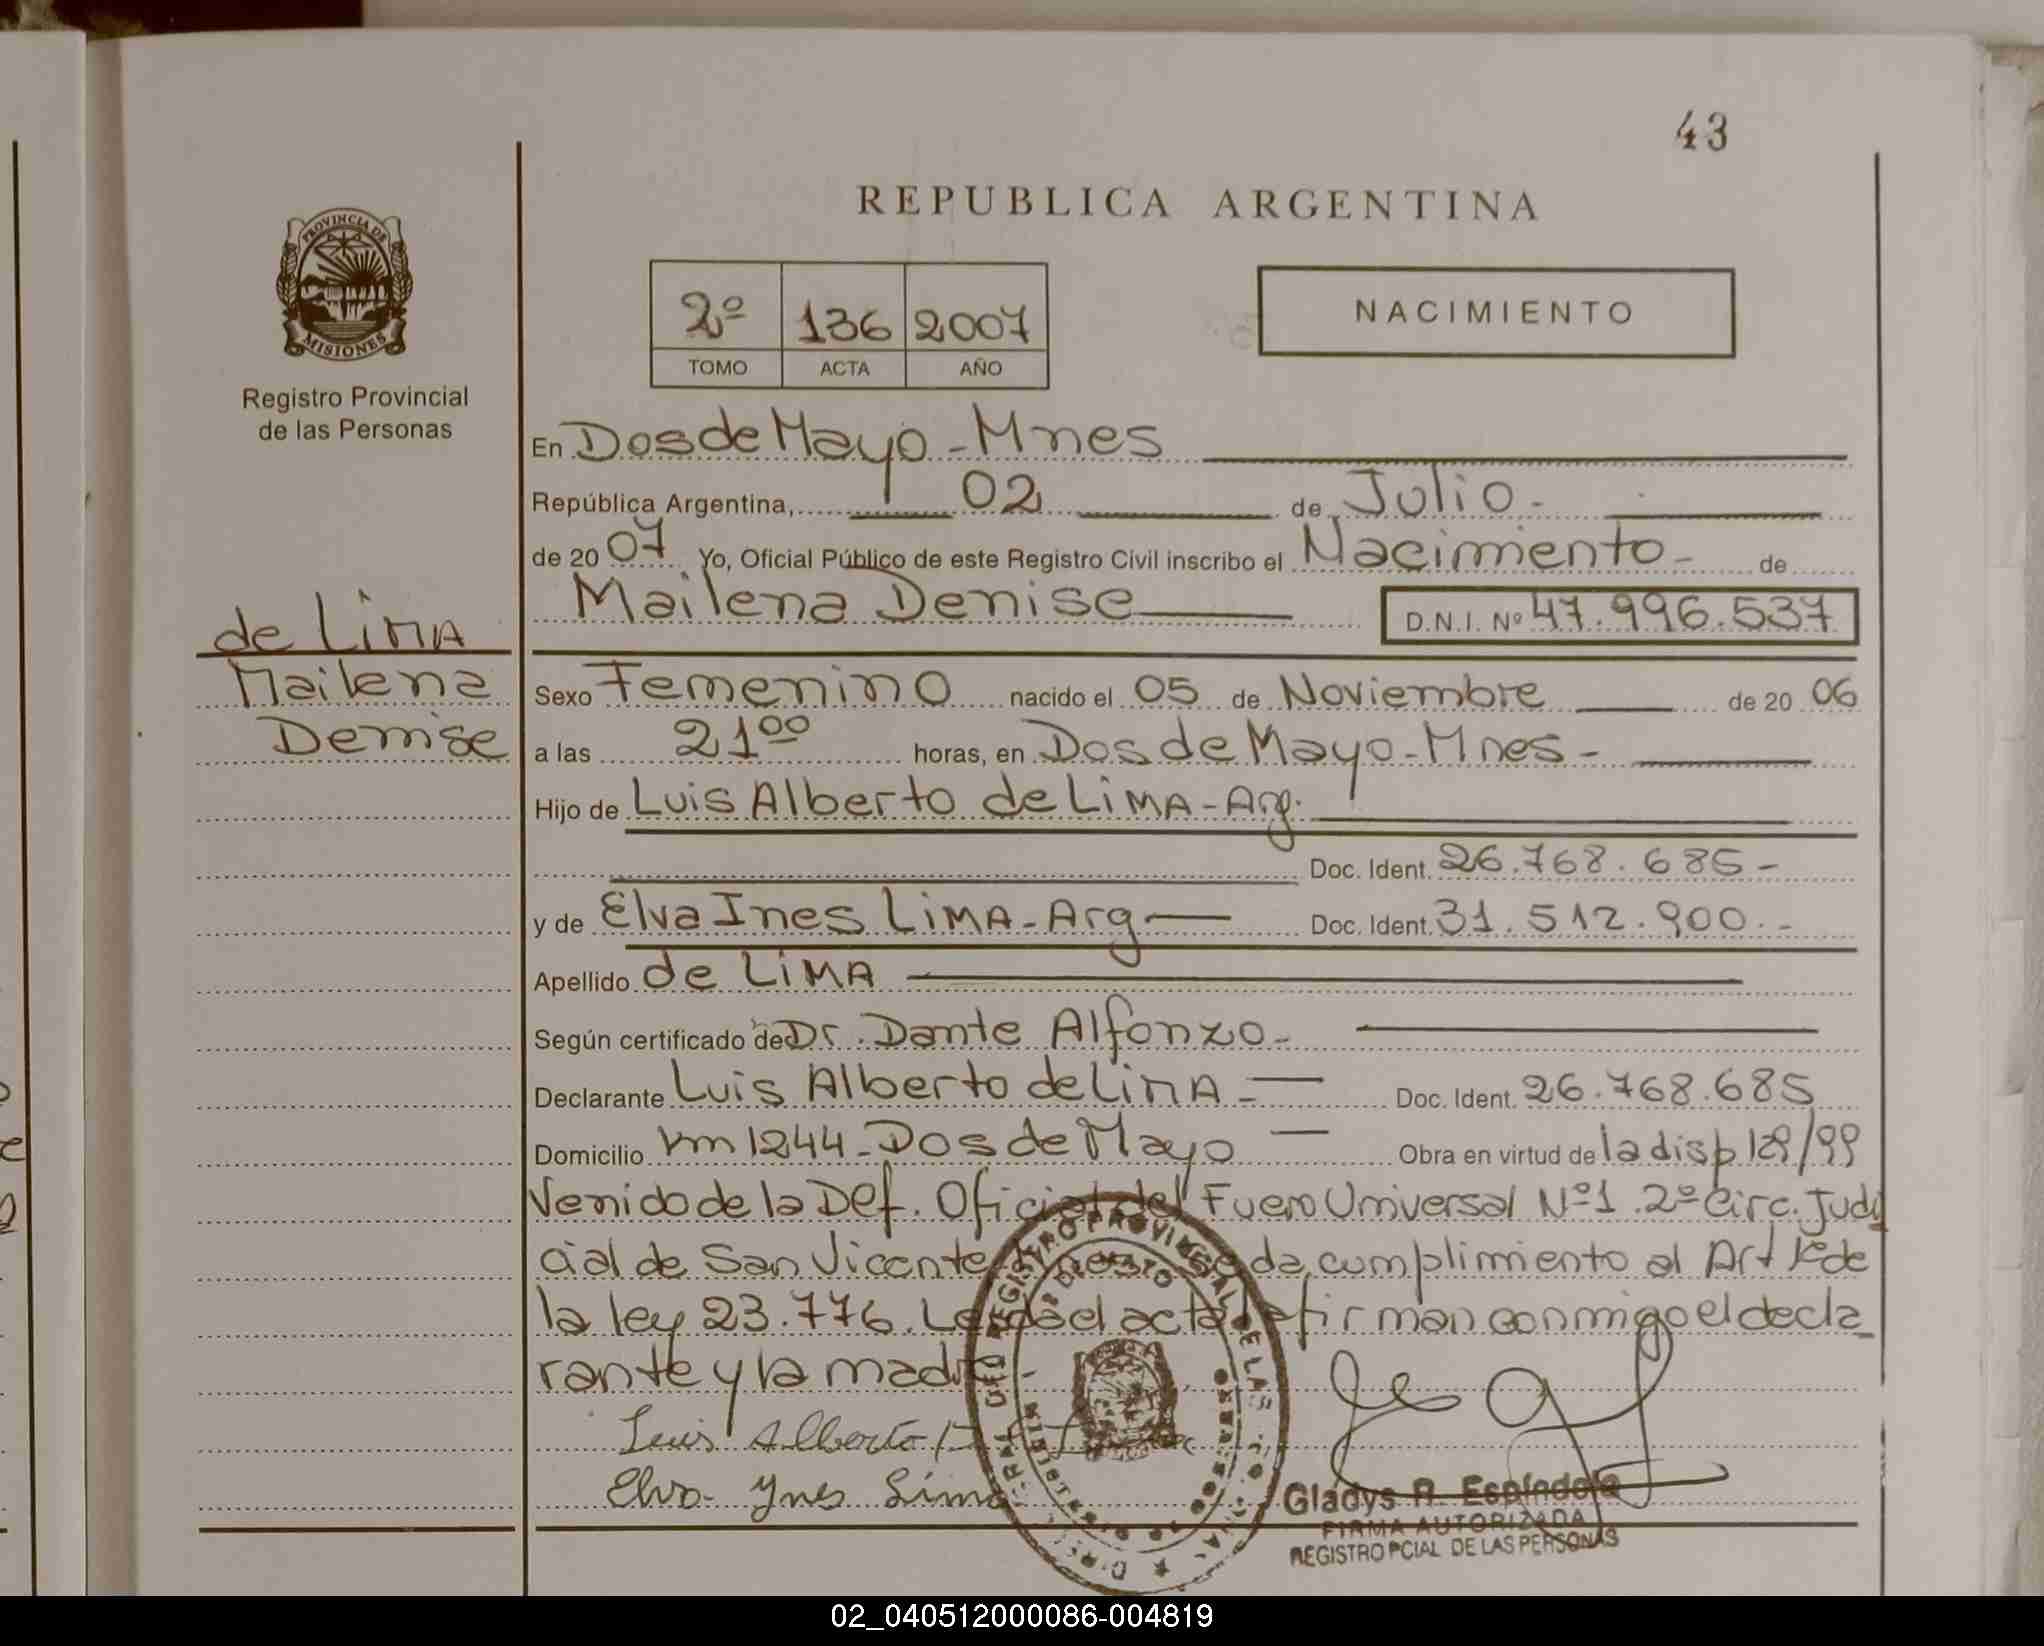 43
REPUBLICA ARGENTINA
PROVINCIA DE
MISIONES
Registro Provincial
de las Personas
2º 136 2007
TOMO ACTA AÑO
NACIMIENTO
En Dos de Mayo - Mnes
República Argentina, 02 de Julio -
de 20 07 Yo, Oficial Público de este Registro Civil inscribo el Nacimiento - de
Mailena Denise D.N.I. Nº 47.996.537
de LiMA
Mailena
Denise
Sexo Femenino nacido el 05 de Noviembre de 20 06
a las 21 00 horas, en Dos de Mayo - Mnes -
Hijo de Luis Alberto de LiMA - Arg.
Doc. Ident. 26.768.685 -
y de Elva Ines LiMA - Arg Doc. Ident. 31.512.900. -
Apellido de LiMA
Según certificado de Dr. Dante Alfonzo -
Declarante Luis Alberto de LiMA Doc. Ident. 26.768.685
Domicilio Km 1244 - Dos de Mayo Obra en virtud de la disp 129/99
Venido de la Def. Oficial del Fuero Universal Nº 1. 2º Circ. Judi
cial de San Vicente da cumplimiento al Art 1º de
la ley 23.776. Leida el acta la firman conmigo el decla
rante y la madre -
Luis Alberto
Elva Ynes Lima
Gladys R. Espíndola
FIRMA AUTORIZADA
REGISTRO PCIAL DE LAS PERSONAS
02_040512000086-004819